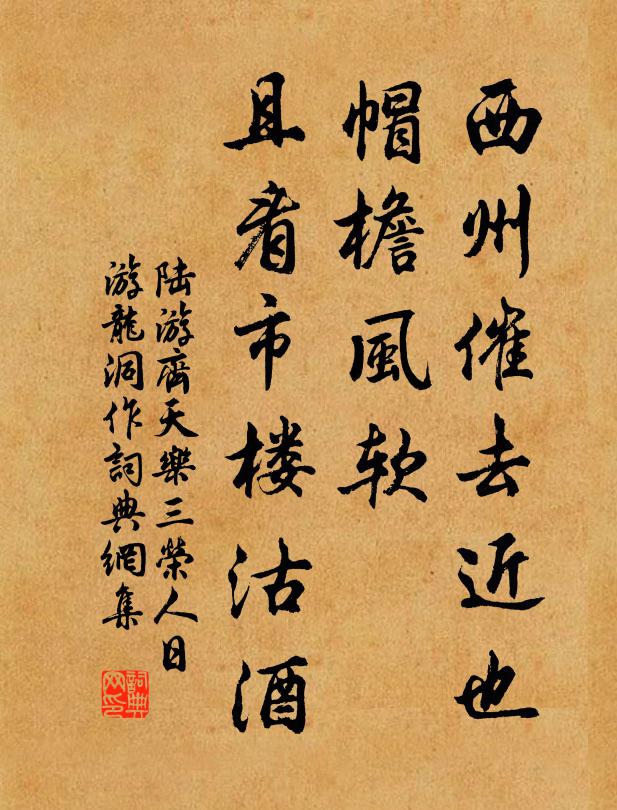 西州催去近也
帽檐風软
且看市楼沽酒
陆游齊天樂三榮人日
游龍洞作詞典網集
詞典网印